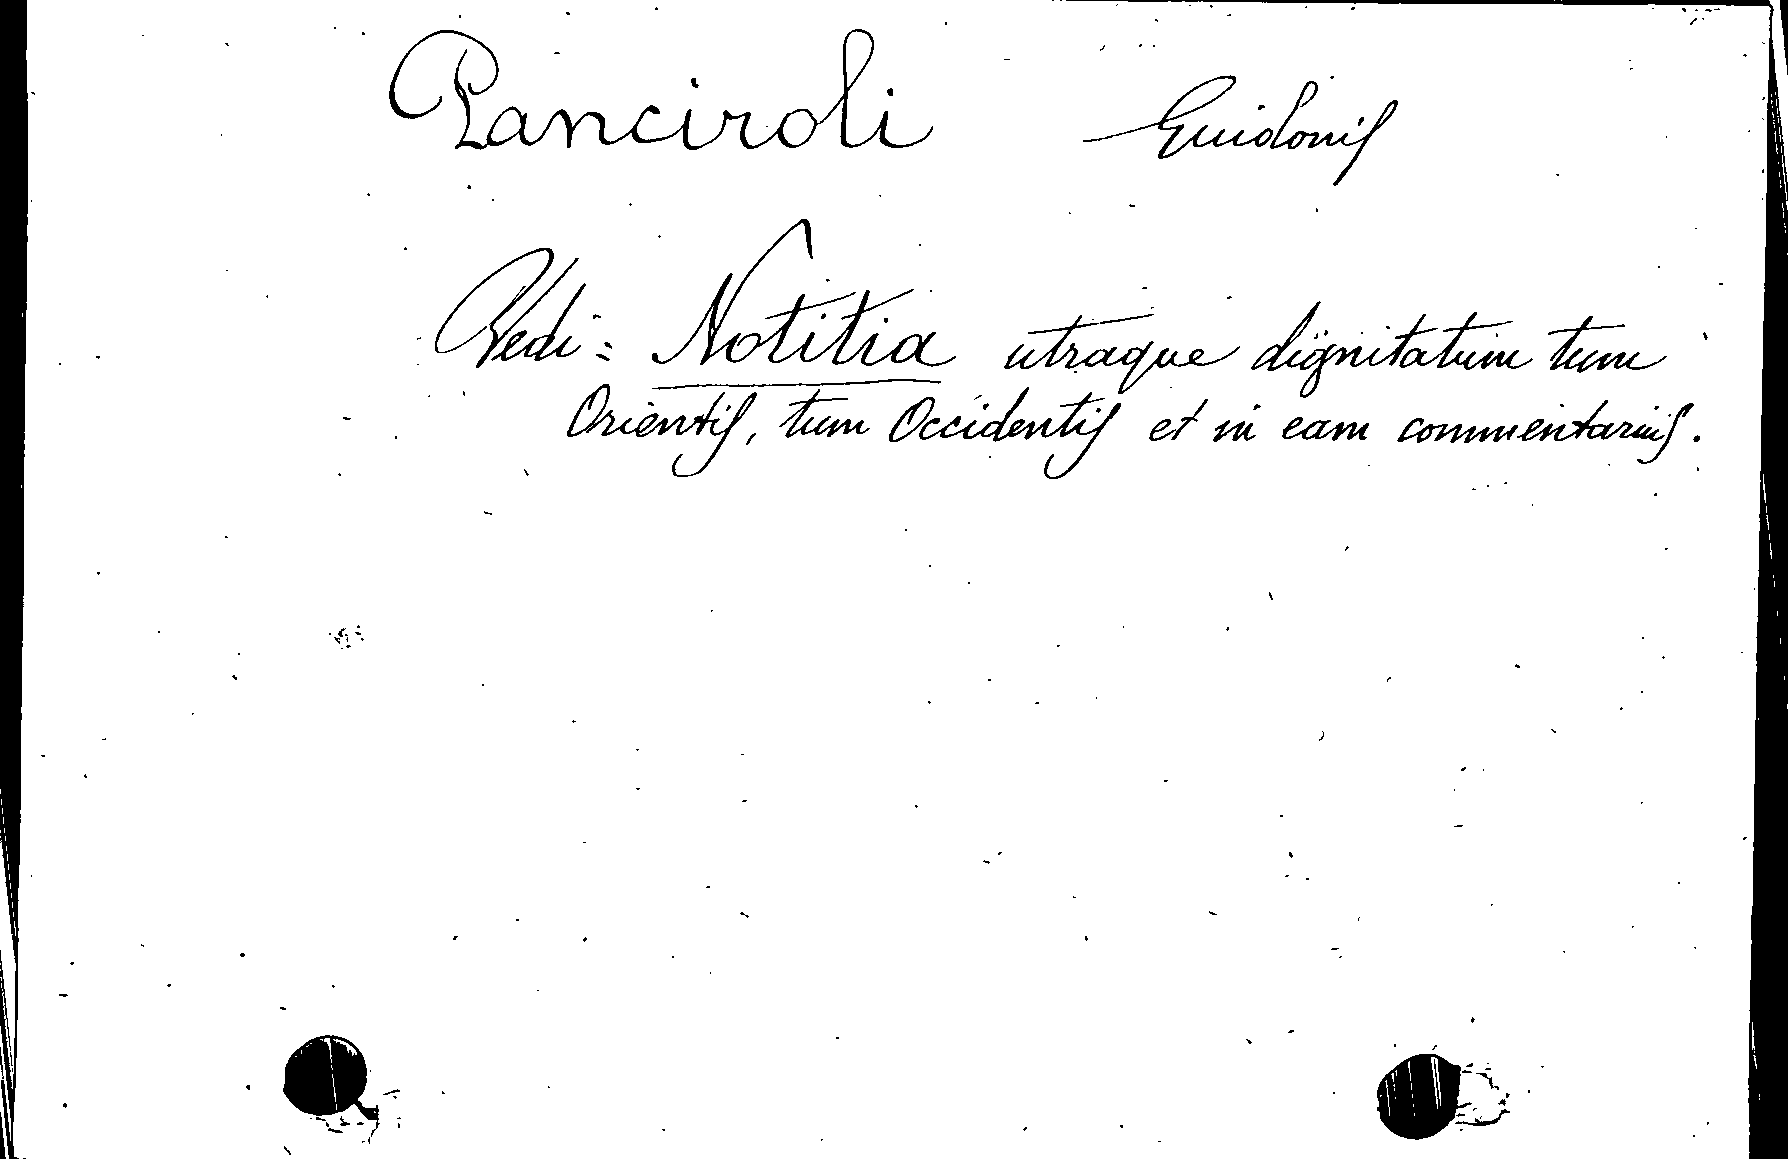 Panciroli Guidonis
Vedi: Notitia utraque dignitatum tum
Orientis, tum Occidentis et in eam commentarius.